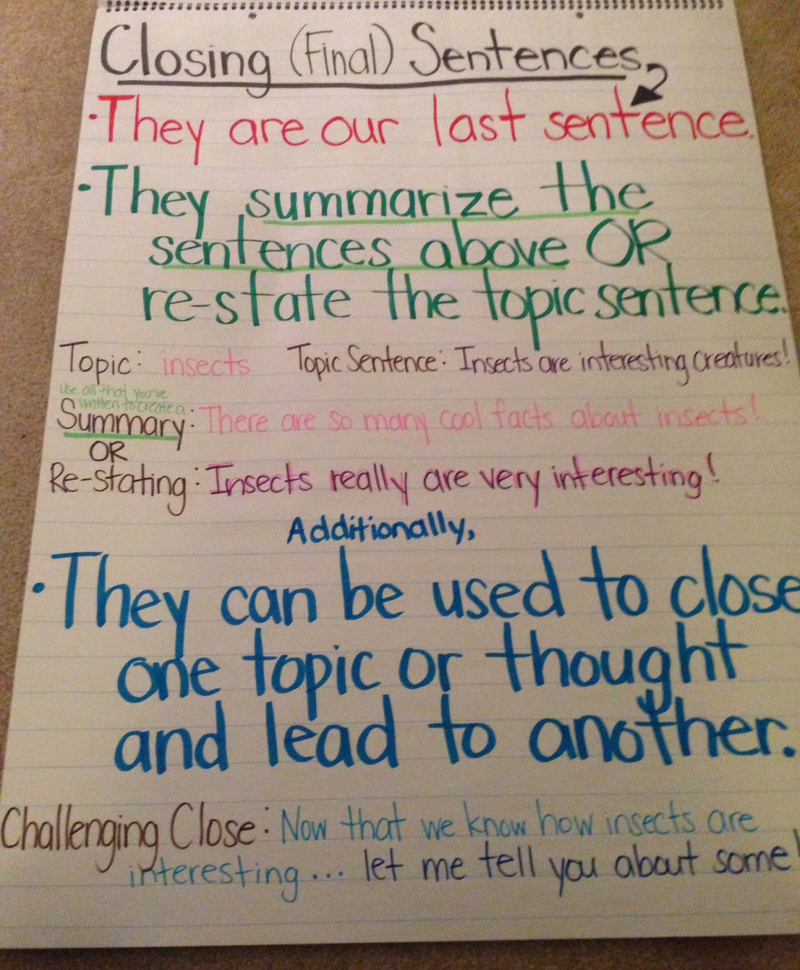 Closing (Final) Sentences
•They are our last sentence.
•They summarize the
sentences above OR
re-state the topic sentence.
Topic: insects Topic Sentence: Insects are interesting creatures!
Use all that you've
written to create a
Summary: There are so many cool facts about insects!
OR
Re-stating: Insects really are very interesting!
Additionally,
•They can be used to close
one topic or thought
and lead to another.
Challenging Close: Now that we know how insects are
interesting... let me tell you about some!